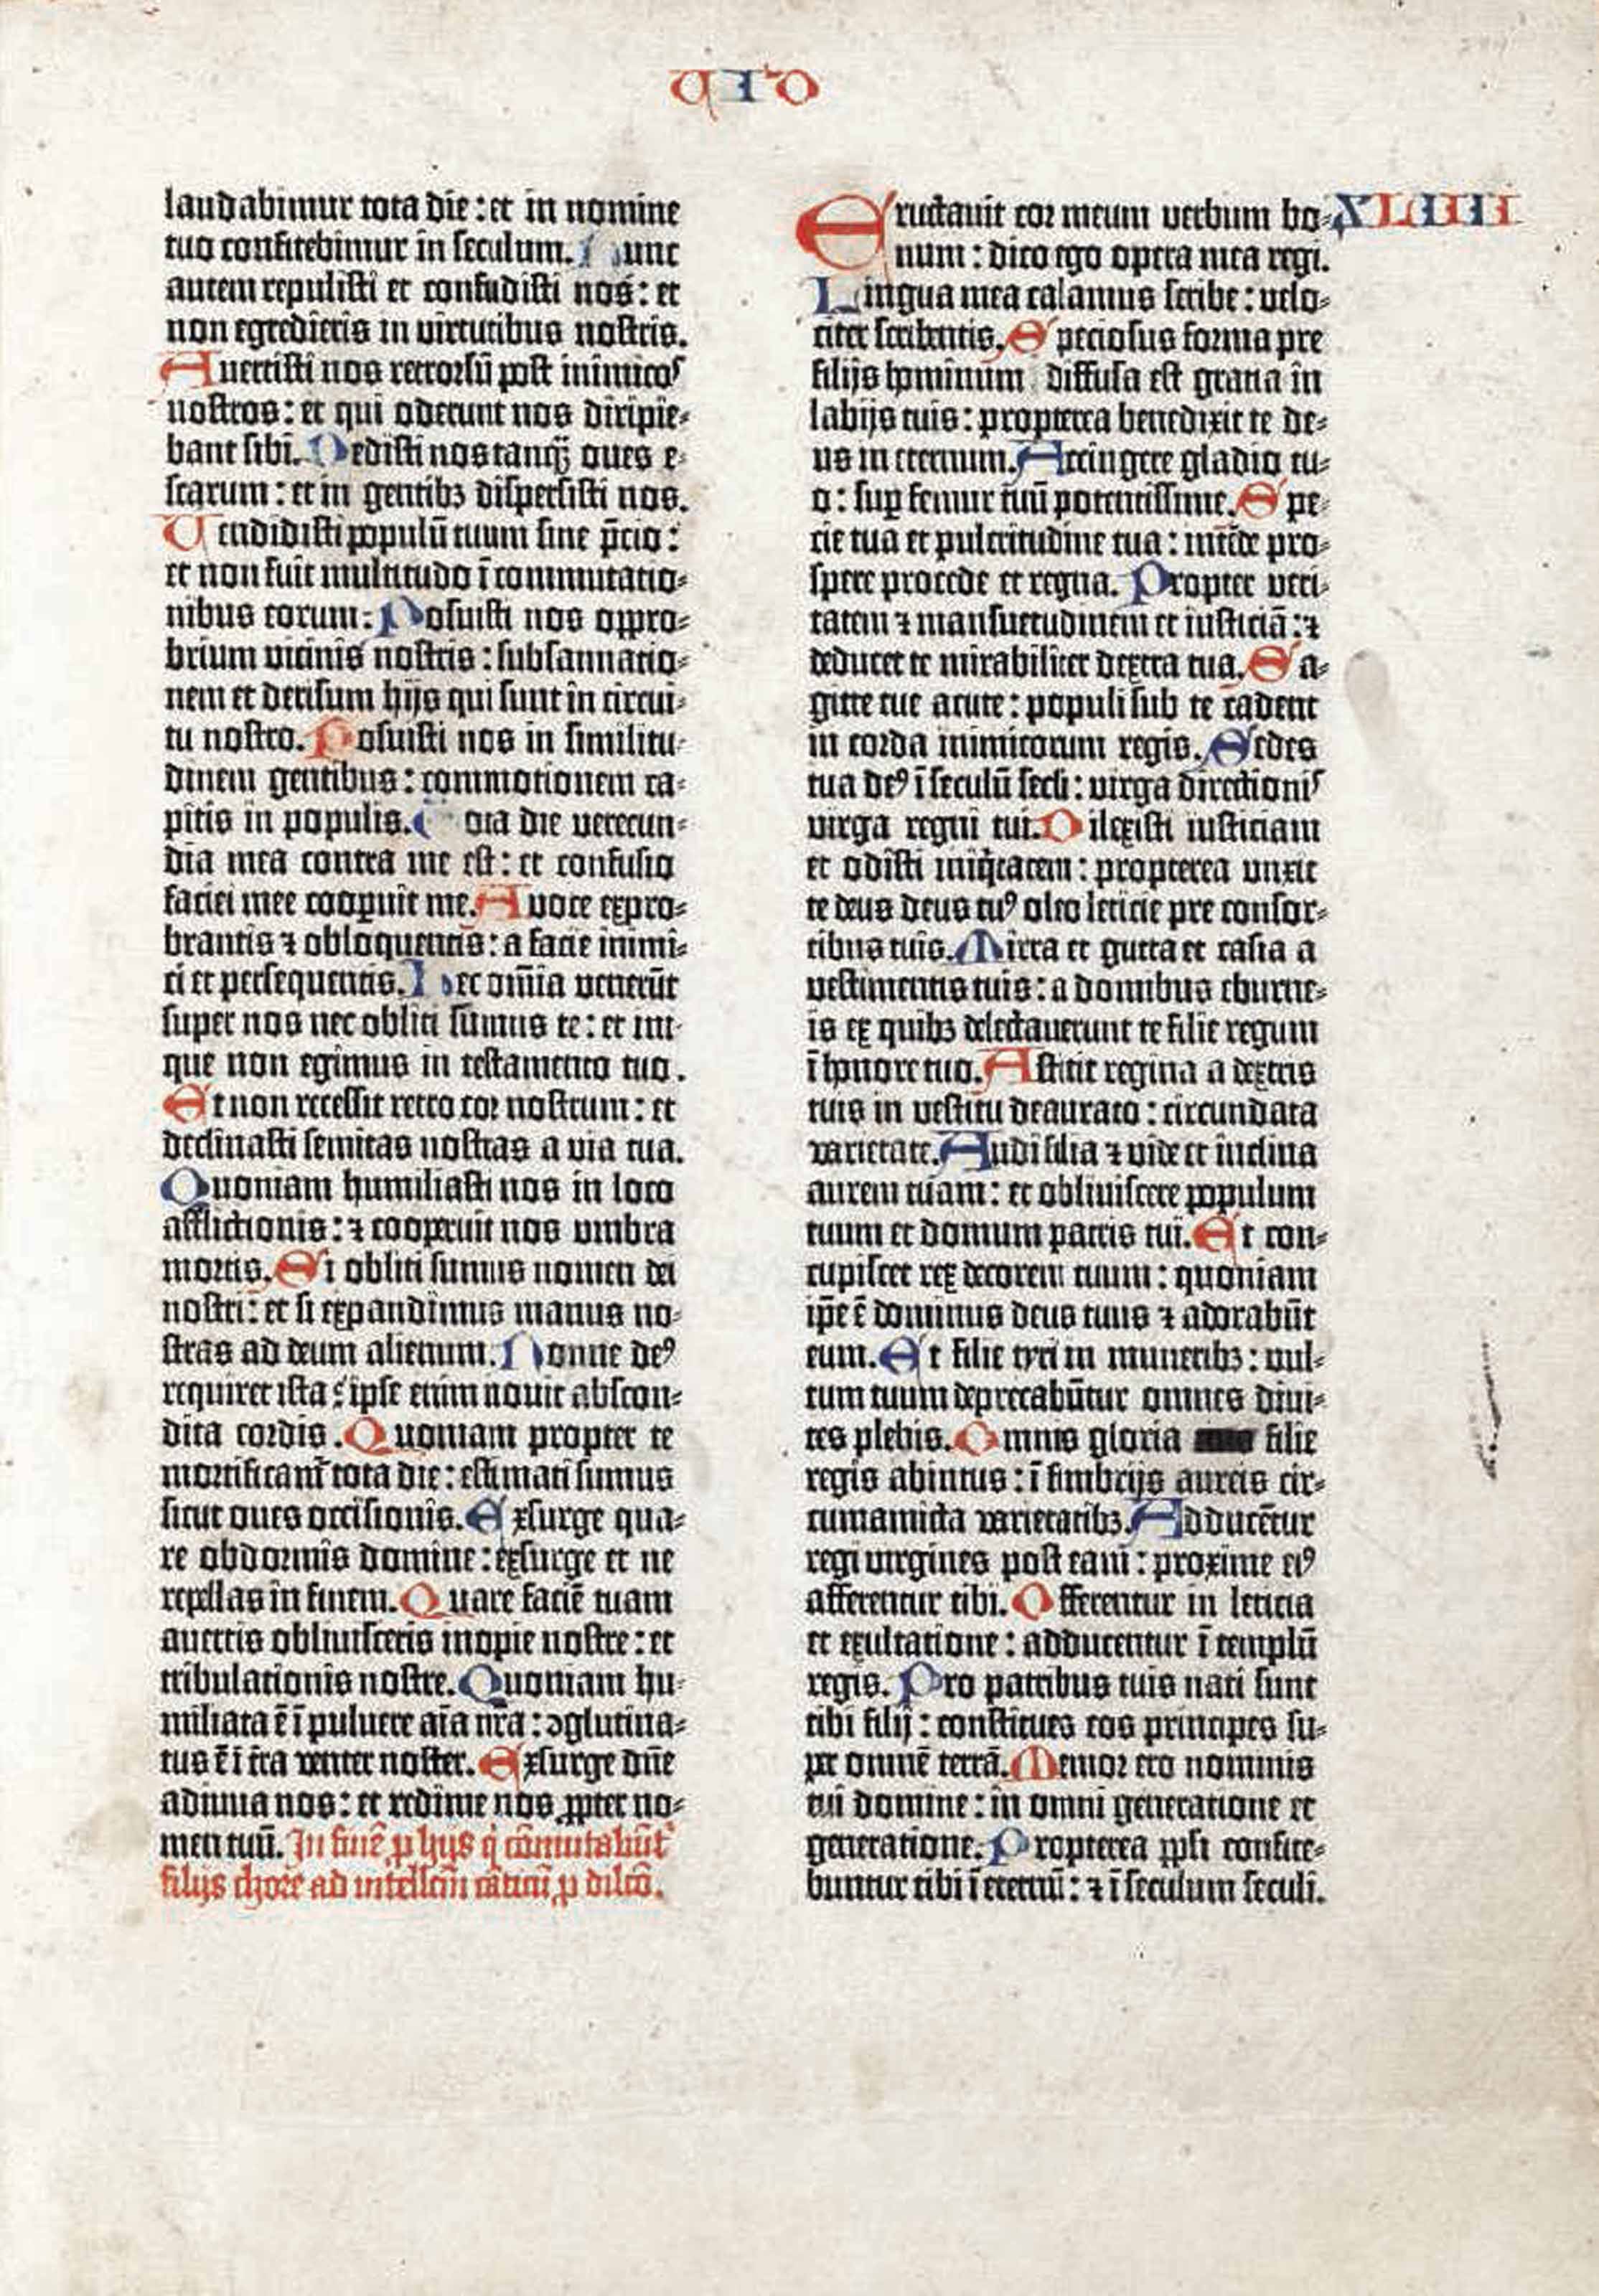 laudabimur tota die : et in nomine
tuo confitebimur in seculum. Nunc
autem repulisti et confudisti nos : et
non egredieris in virtutibus nostris.
Avertisti nos retrorsū post inimicos
nostros : et qui oderunt nos diripie-
bant sibi. Dedisti nos tanq̄ oues e-
scarum : et in gentibꝫ dispersisti nos.
Vendidisti populū tuum sine p̄cio :
et non fuit multitudo ī commutatio-
nibus eorum : Posuisti nos oppro-
brium vicinis nostris : subsannatio-
nem et derisum hijs qui sunt in circui-
tu nostro. Posuisti nos in similitu-
dinem gentibus : commotionem ca-
pitis in populis. Tota die verecun-
dia mea contra me est : et confusio
faciei mee cooꝑuit me. A voce expro-
brantis ⁊ obloquentis : a facie inimi-
ci et persequentis. Hec om̄ia venerūt
super nos nec obliti sumus te : et ini-
que non egimus in testamento tuo.
Et non recessit retro cor nostrum : et
declinasti semitas nostras a via tua.
Quoniam humiliasti nos in loco
afflictionis : ⁊ cooperuit nos umbra
mortis. Si obliti sumus nomen dei
nostri : et si expandimus manus no-
stras ad deum alienum. Nonne deꝰ
requiret ista : ipse enim novit abscon-
dita cordis. Quoniam propter te
mortificamr̄ tota die : estimati sumus
sicut oues occisionis. Exsurge qua-
re obdormis domine : exsurge et ne
repellas in finem. Quare faciē tuam
avertis oblivisceris inopie nostre : et
tribulationis nostre. Quoniam hu-
miliata ē ī pulvere aīa nr̄a : ↄglutina-
tus ē ī t̄ra venter noster. Exsurge dn̄e
adiuua nos : et redime nos ꝓpter no-
men tuū. In finē ꝓ hijs q̇ cōmutabūt᷑
filijs chore ad intellcm̄ cāticū ꝓ dilcō.
Eructauit cor meum verbum bo- XLIIII
num : dico ego opera mea regi.
Lingua mea calamus scribe : velo-
citer scribentis. Speciosus forma pre
filijs hominum diffusa est gratia in
labijs tuis : propterea benedixit te de-
us in eternum. Accingere gladio tu-
o : suꝑ femur tuū potentissime. Spe-
cie tua et pulcritudine tua : intēde pro-
spere procede et regna. Propter veri-
tatem ⁊ mansuetudinem et iusticiā : ⁊
deducet te mirabiliter dextra tua. Sa-
gitte tue acute : populi sub te cadent
in corda inimicorum regis. Sedes
tua deꝰ ī seculū secli : virga directionis
virga regni tui. Dilexisti iusticiam
et odisti iniq̇tatem : propterea unxit
te deus deus tuꝰ oleo leticie pre consor-
tibus tuis. Mirra et gutta et casia a
vestimentis tuis : a domibus eburne-
is ex quibꝫ delectaverunt te filie regum
ī honore tuo. Astitit regina a dextris
tuis in vestitu deaurato : circundata
varietate. Audi filia ⁊ vide et inclina
aurem tuam : et obliviscere populum
tuum et domum patris tui. Et con-
cupiscet rex decorem tuum : quoniam
ip̄e ē dominus deus tuus ⁊ adorabūt
eum. Et filie tyri in muneribꝫ : vul-
tum tuum deprecabūtur omnes divi-
tes plebis. Omnis gloria filie
regis abintus : ī fimbrijs aureis cir-
cumamicta varietatibꝫ. Adducētur
regi virgines post eam : proxime eiꝰ
afferentur tibi. Offerentur in leticia
et exultatione : adducentur ī templū
regis. Pro patribus tuis nati sunt
tibi filij : constitues eos principes su-
per omnē terrā. Memor ero nominis
tui domine : in omni generatione et
generatione. Propterea ppl̄i confite-
buntur tibi ī eternū : ⁊ ī seculum seculi.